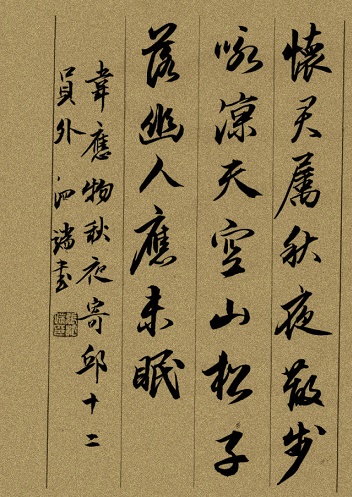 懷君屬秋夜散步
咏凉天空山松子
落幽人應未眠
韋應物秋夜寄邱十二
員外 泗端書